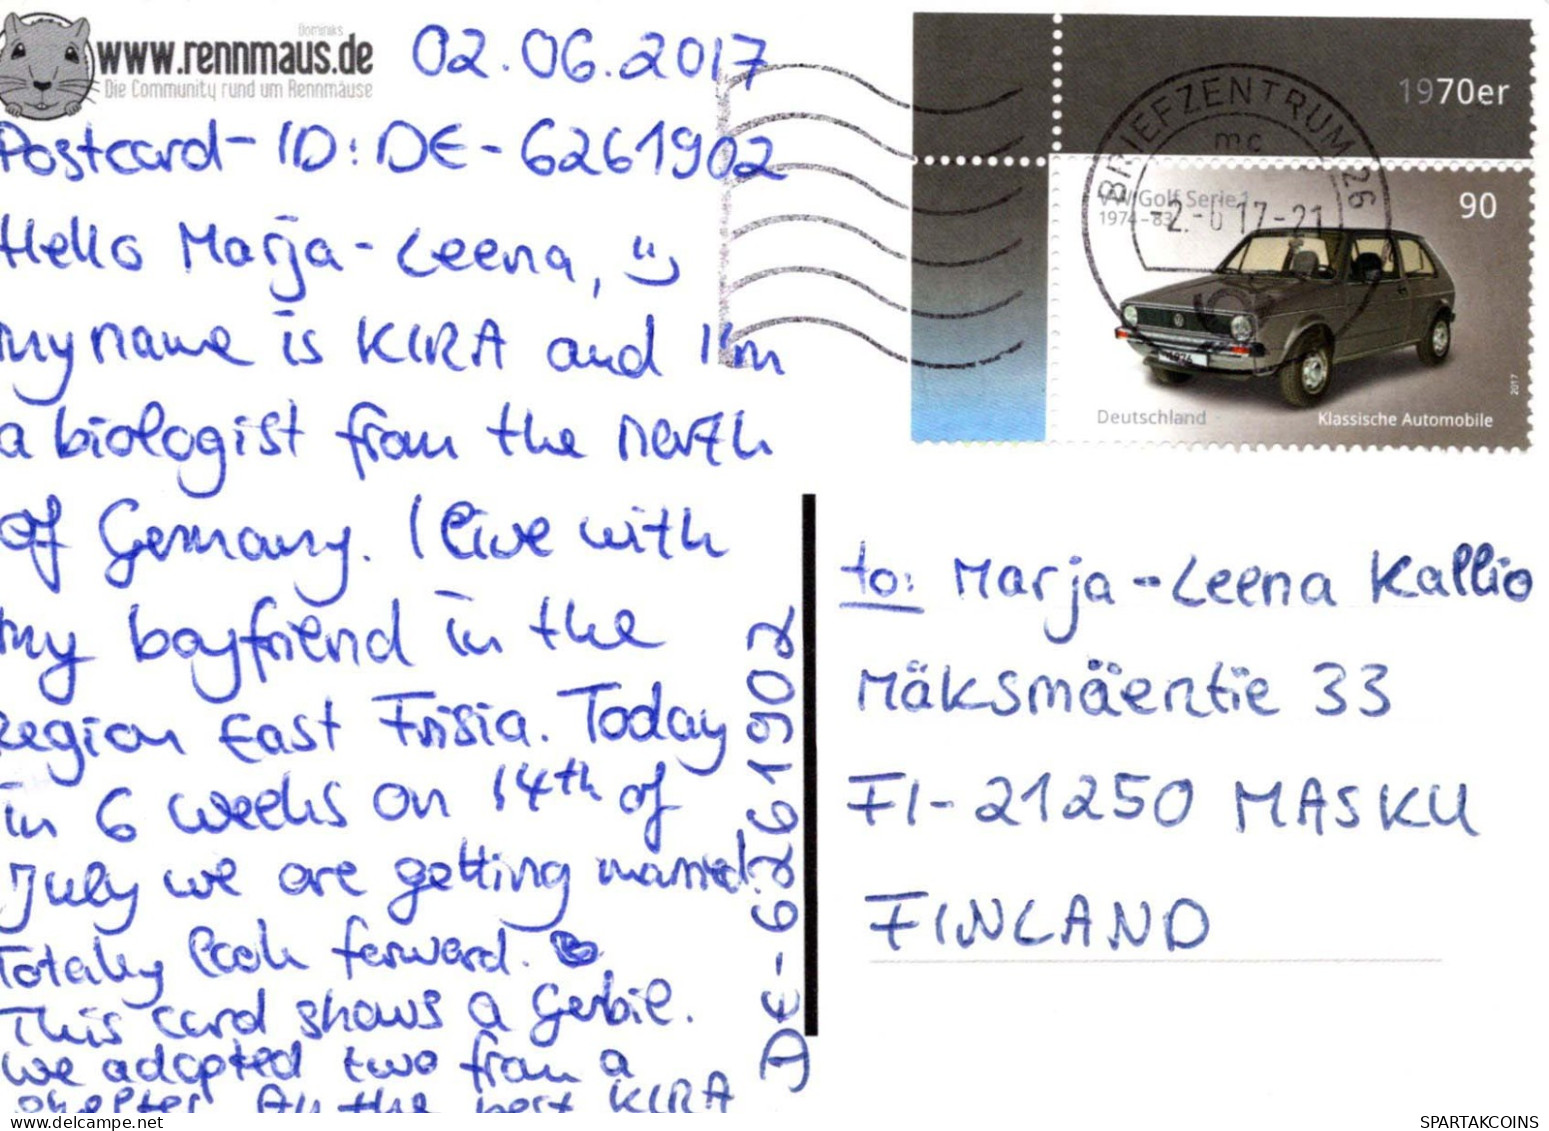 Dominiks
www.rennmaus.de
Die Community rund um Rennmäuse
02.06.2017
Postcard-ID: DE-6261902
Hello Marja-Leena,
my name is KIRA and I'm
a biologist from the north
of Germany. I live with
my boyfriend in the
region East Frisia. Today
in 6 weeks on 14th of
July we are getting married.
Totally look forward.
This card shows a Gerbil.
We adopted two from a
shelter. All the best KIRA
DE-6261902
1970er
BRIEFZENTRUM 26
mc
VW Golf Serie 1
1974-83
90
-2.-6.17-21
Deutschland
Klassische Automobile
2017
to: Marja-Leena Kallio
Mäksmäentie 33
FI-21250 MASKU
FINLAND
delcampe.net
SPARTAKCOINS